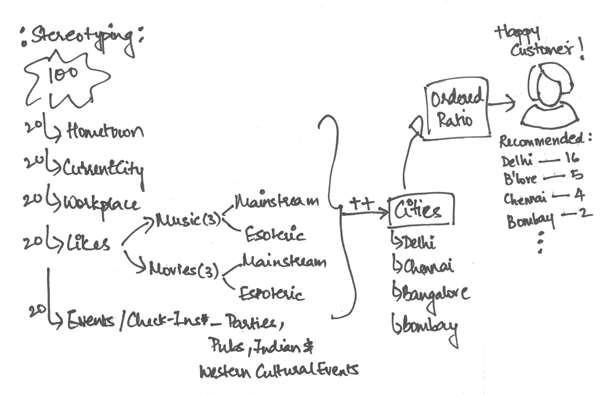 :Stereotyping:
100
20 Hometown
20 CurrentCity
20 Workplace
20 Likes
Music(3)
Mainstream
Esoteric
Movies(3)
Mainstream
Esoteric
20 Events/Check-Ins# - Parties,
Pubs, Indian &
Western Cultural Events
++
Cities
Delhi
Chennai
Bangalore
Bombay
Ordered
Ratio
Happy
Customer!
Recommended:
Delhi — 16
B'lore — 5
Chennai — 4
Bombay — 2